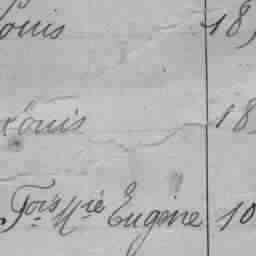 Louis 18
Louis 18
Fois Mie Eugène 10